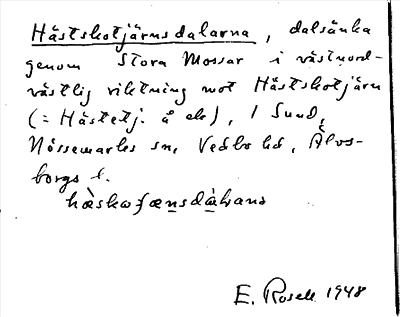 Hästskotjärnsdalarna, dalsänka
genom Stora Mossar i västnord-
västlig riktning mot Hästskotjärn
(= Hästetj. å ek), 1 Sund,
Nössemarks sn, Vedbo hd, Älvs-
borgs l.
E. Rosell 1948